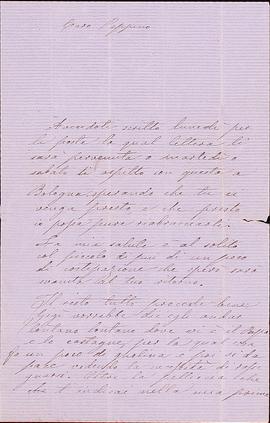 Caro Peppino
Avendoti scritto lunedì per
la posta la qual lettera ti
sarà pervenuta o martedì o
sabato ti aspetto con questo a
Bologna sperando che tu ci
venga presto e che presto
io possa pure riabbracciarti.
La mia salute è al solito
col piccolo di più di un poco
di costipazione che spero sarà
svanita al tuo ritorno.
Il resto tutto procede bene.
Gigi vorrebbe di già andar
lontano lontano dove vi è il
e le castagne, per la qual cosa
fa un poco di e poi si dà
pace vedendo la
Altro le
che t'indicai nella mia prima